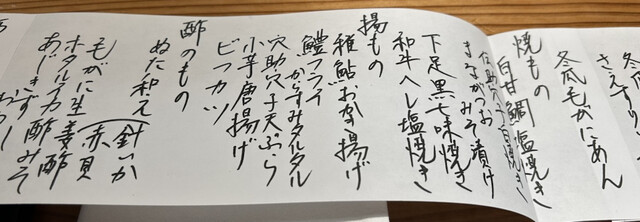 さえずり
冬瓜毛がにあん
焼もの
白甘鯛塩焼き
まながつおみそ漬け
下足黒七味焼き
和牛ヘレ塩焼き
揚もの
稚鮎おかき揚げ
鱧フライ
からすみタルタル
穴助穴子天ぷら
小芋唐揚げ
ビフカツ
酢のもの
ぬた和え
針いか
赤貝
毛がに生姜酢
ホタルイカ酢みそ
あじきずし